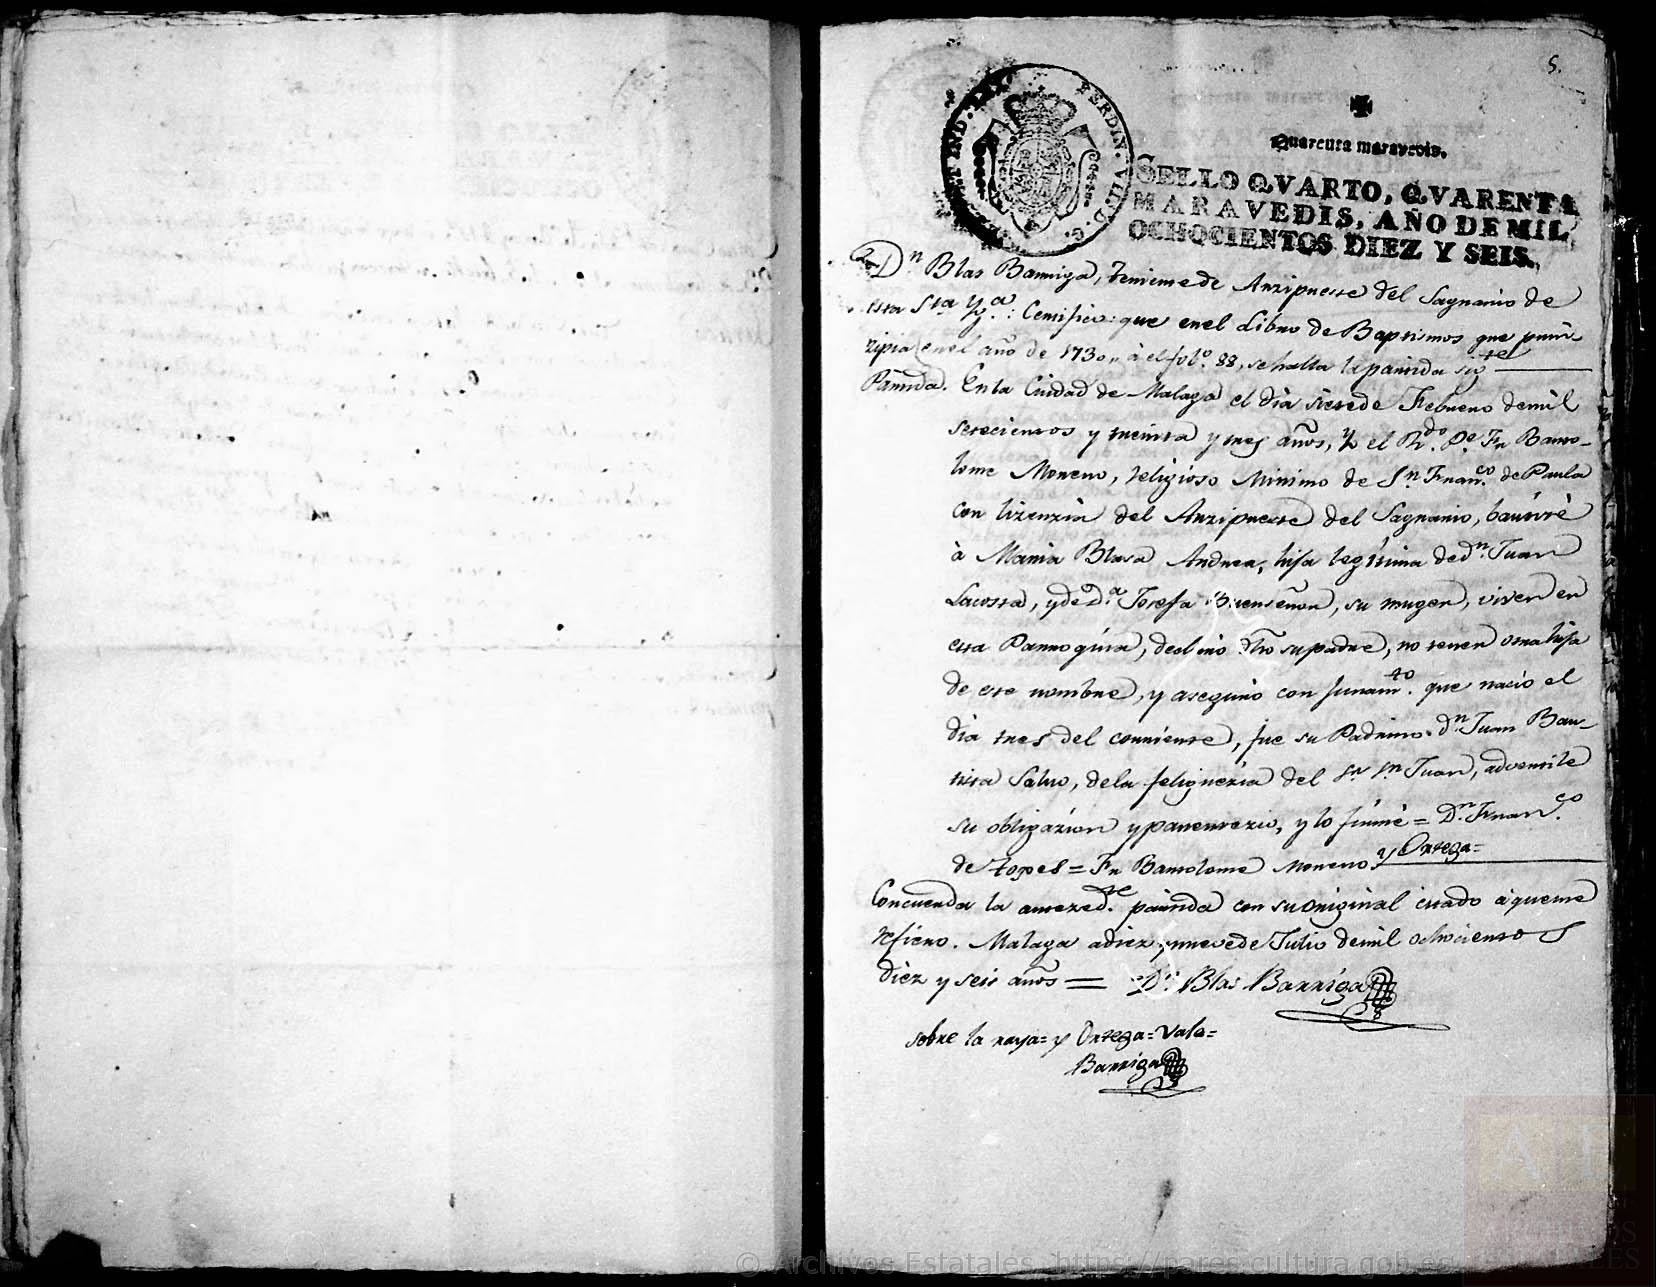 5.
FERDIN. VII. D. G.
IND. REX
Quarenta maravedis.
SELLO QVARTO, QVARENTA
MARAVEDIS, AÑO DE MIL
OCHOCIENTOS DIEZ Y SEIS.
Dn Blas Barriga, Teniente de Arzipreste del Sagrario de
esta Sta Yga: Certifico: que en el Libro de Baptismos que prin-
zipia en el año de 1730,, à el folo. 88, se halla la partida sigte
Partida. En la Ciudad de Malaga el dia siete de Febrero de mil
setecientos y treinta y tres años, Yo el Rdo. Pe Fr Barto-
lome Moreno, religioso Minimo de Sn. Franco. de Paula
con lizenzia del Arzipreste del Sagrario, bautizè
à Maria Blasa Andrea, hija legitima de dn. Juan
Lacosta, y de Da. Josefa Buenseñor, su muger, viven en
esta Parroquia, declaró dho su padre, no tener otra hija
de este nombre, y aseguró con juramto. que nació el
dia tres del corriente, fue su Padrino dn. Juan Bau-
tista Salvo, de la feligrezia del Sr Sn Juan, advertile
su obligazion y parentezco, y lo firmè = Dn. Franco.
de Topes = Fr Bartolome Moreno y Ortega =
Concuerda la antezedte. partida con su original citado à que me
refiero. Malaga a diez y nueve de Julio de mil ochocientos
diez y seis años = Dn. Blas Barriga
sobre la raya = y Ortega = Vale =
Barriga
© Archivos Estatales, https://pares.cultura.gob.es